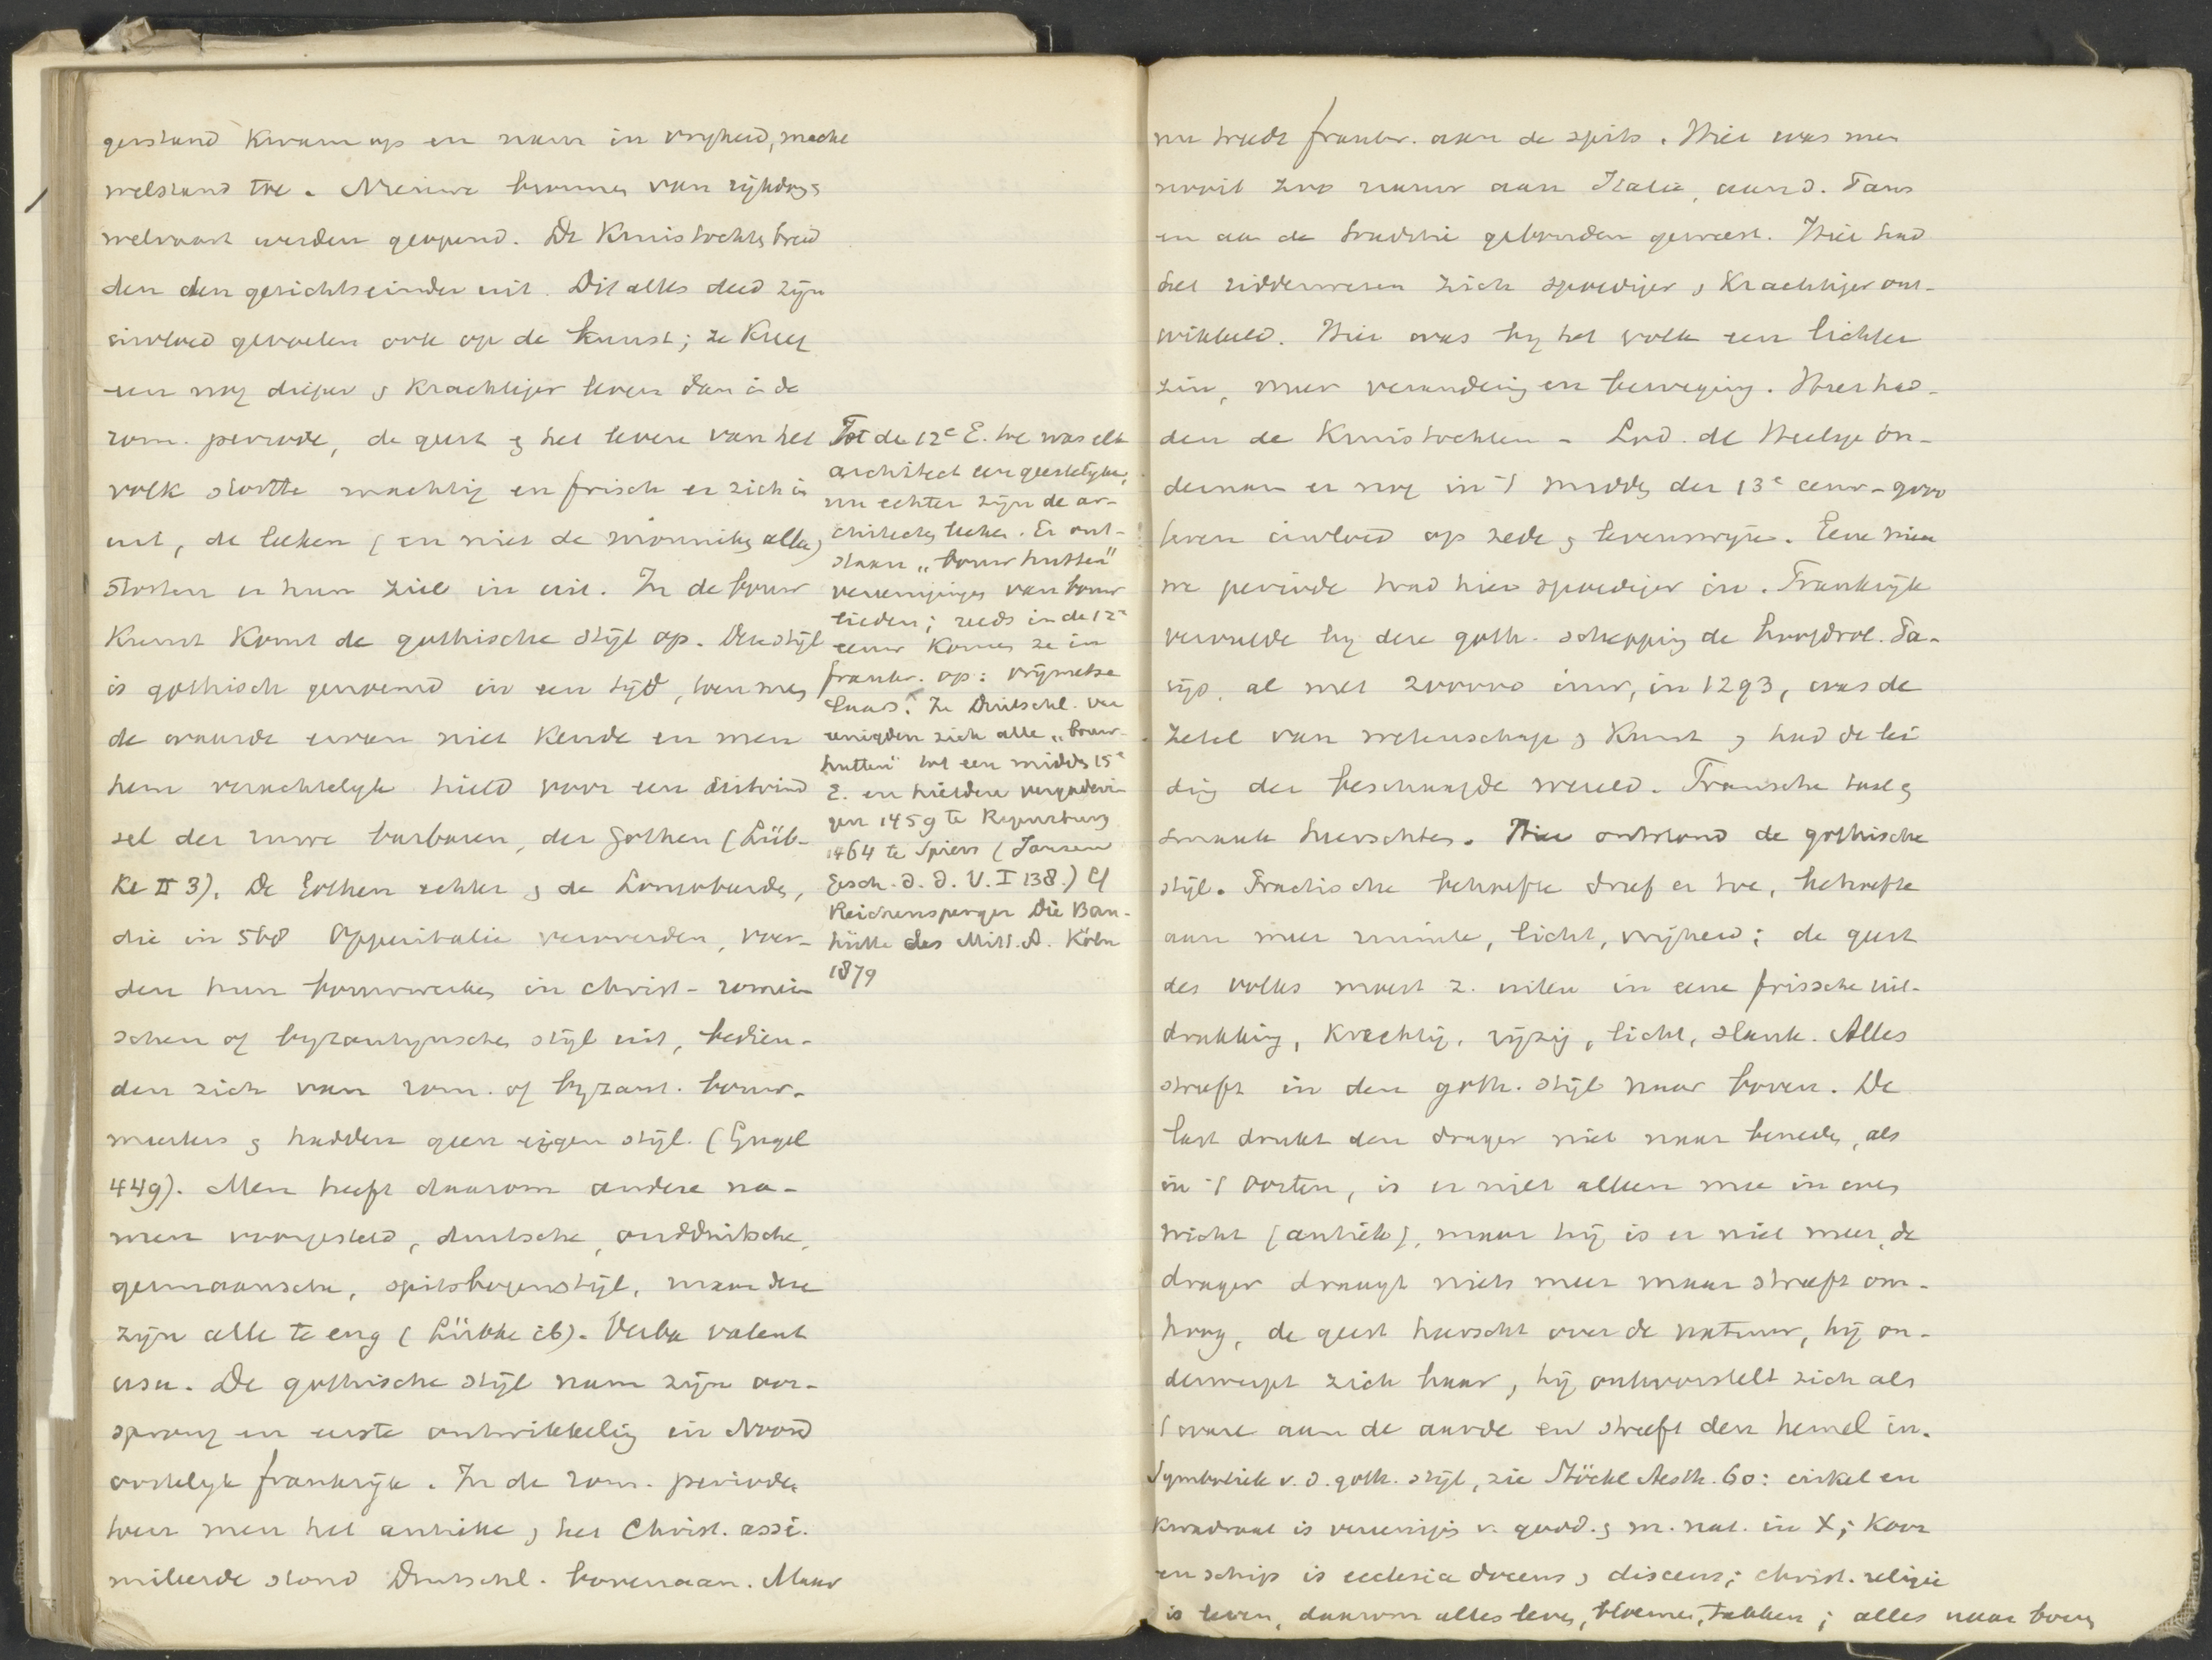 gerstand kwam op en nam in vryheid, macht
welstand toe. Nieuwe bronnen van rijkdom &
welvaart werden geopend. De Kruistochten breid
den den gezichtseinder uit. Dit alles deed zijn
invloed gevoelen ook op de kunst; ze kreeg
een nog dieper & krachtiger leven dan in de
rom. periode, de geest & het leven van het
volk stortte machtig en frisch er zich in
uit, de leeken (en niet de monniken alleen)
stortten er hun ziel in uit. In de bouw
kunst komt de gothische stijl op. Deze stijl
is gothisch genoemd in een tijd, toen men
de waarde ervan niet kende en men
hem verachtelyk hield voor een uitvind
sel der ruwe barbaren, der Gothen (Lüb-
ke II 3). De Gothen echter & de Longobarden,
die in 568 Opperitalie veroverden, voer-
den hun bouwwerken in christ-romein
schen of byzantynschen stijl uit, bedien-
den zich van rom. of byzant. bouw-
meesters & hadden geen eigen stijl. (Gugel
449). Men heeft daarom andere na-
men voorgesteld, duitsche, oudduitsche,
germaansche, spitsbogenstijl, maar deze
zijn alle te eng (Lübke ib). Verba valent
usu. De gothische stijl nam zijn oor-
sprong en eerste ontwikkeling in Noord
oostelyk frankrijk. In de rom. periode,
toen men het antieke & het Christ. assi-
mileerde stond Duitschl. bovenaan. Maar
Tot de 12e E. toe was elk
architect een geestelyke,
nu echter zijn de ar-
chitecten leeken. Er ont-
staan „bouwhutten"
vereenigingen van bouw
lieden; reeds in de 12e
eeuw komen ze in
frankr. op: vrijmetse
laars. In Duitschl. ver
eenigden zich alle „bouw-
hutten" tot een midden 15e
E. en hielden vergaderin
gen 1459 te Regensburg
1464 te Spiers (Janssen
Gesch. d. d. V. I 138.) Cf
Reichensperger Die Bau-
hütte des Mitt. A. Köln
1879
nu treedt frankr. aan de spits. Hier was men
nooit zoo nauw aan Italie, aan d. Paus
en aan de traditie gebonden geweest. Hier had
het ridderwezen zich spoediger & krachtiger ont-
wikkeld. Hier was by het volk een lichter
zin, meer verandering en beweging. Hier had-
den de Kruistochten - Lod. de Heilige on-
dernam er nog in 't midden der 13e eeuw - groo
teren invloed op zede & levenswijze. Eene nieu
we periode trad hier spoediger in. Frankrijk
vervulde by deze goth. schepping de hoofdrol. Pa-
rijs, al met 200000 inw, in 1293, was de
zetel van wetenschap & kunst & had de lei
ding der beschaafde wereld. Fransche taal &
smaak heerschten. Hier ontstond de gothische
stijl. Practische behoefte dreef er toe, behoefte
aan meer ruimte, licht, vrijheid; de geest
des volks moest z. uiten in eene frissche uit-
drukking, krachtig, rijzig, licht, slank. Alles
streeft in den goth. stijl naar boven. De
last drukt den drager niet naar beneden, als
in 't Oosten, is er niet alleen mee in even
wicht (antiek), maar hij is er niet meer, de
drager draagt niets meer maar streeft om-
hoog, de geest heerscht over de natuur, hij on-
derwerpt zich haar, hij ontworstelt zich als
't ware aan de aarde en streeft den hemel in.
Symboliek v. d. goth. stijl, zie Stöckl Aesth. 60: cirkel en
kwadraat is vereeniging v. godd. & m. nat. in X; koor
en schip is ecclesia docens & discens; christ. religie
is leven, daarom alles leven, bloemen, takken; alles naar boven